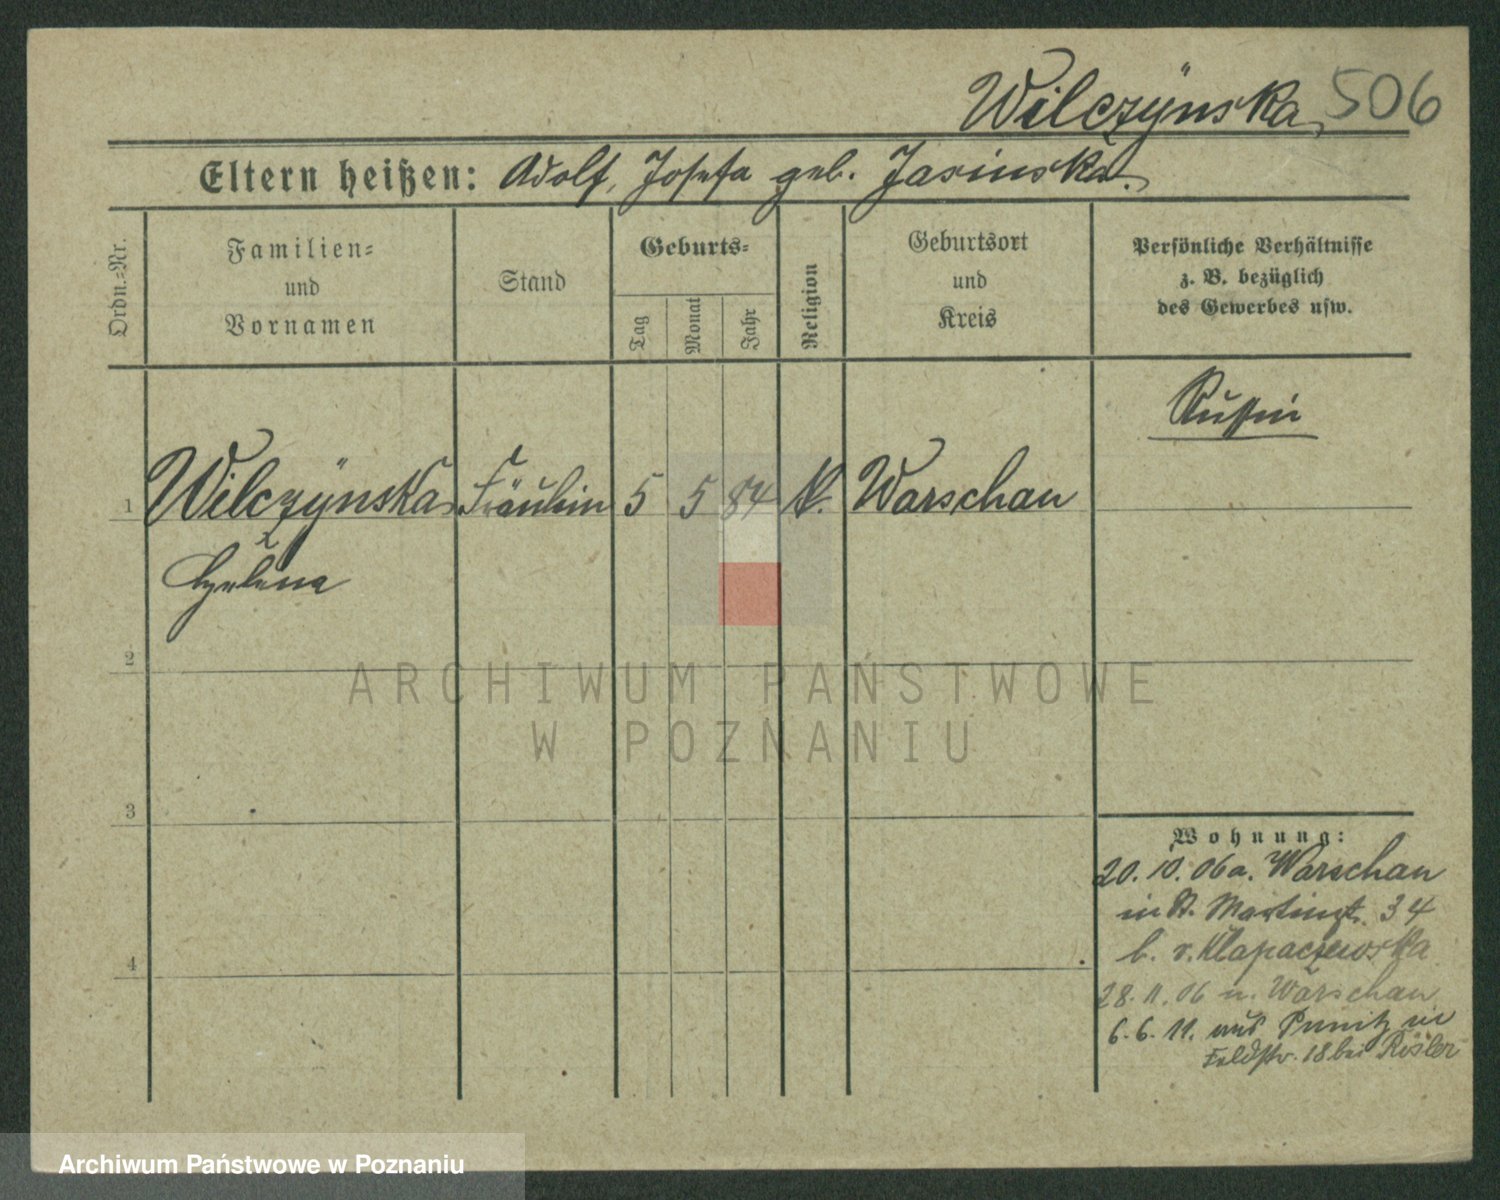 Wilczÿnska, 506
Eltern heißen: Adolf, Josefa geb. Jasinska.
Ordn.=Nr.
Familien=
und
Vornamen
Stand
Geburts=
Tag
Monat
Jahr
Religion
Geburtsort
und
Kreis
Persönliche Verhältnisse
z. B. bezüglich
des Gewerbes usw.
Russin
1 Wilczÿnska Fräulein 5 5 84 K. Warschau
Helena
2
3
4
Wohnung:
20. 10. 06 a. Warschau
in St. Martinst. 34
b. v. Klapaczewska
28. 11. 06 n. Warschau
6. 6. 11. aus Punitz in
Feldstr. 18 bei Rösler
ARCHIWUM PAŃSTWOWE
W POZNANIU
Archiwum Państwowe w Poznaniu